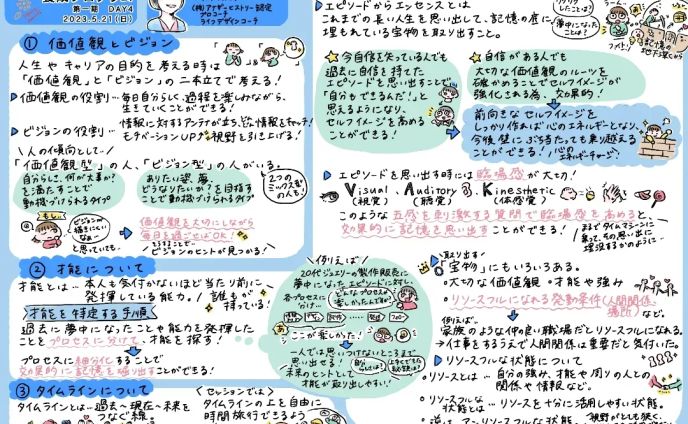 第一期 DAY4
2023.5.21(日)
(株)アナザーストーリー認定
プロコーチ
ライフデザインコーチ
① 価値観とビジョン
人生やキャリアの目的を考える時は
「価値観」と「ビジョン」の二本立てで考える!
価値観の役割…毎日自分らしく、過程を楽しみながら、
生きていくことができる!
ビジョンの役割…情報に対するアンテナが立ち、欲しい情報をキャッチ!
モチベーションUP 視野を引き上げる!
人の傾向として
「価値観型」の人、「ビジョン型」の人がいる。
自分らしさ、何が大事か?
を満たすことで
動機づけられるタイプ
ありたい姿、夢
どうなりたいか?を目指す
ことで動機づけられるタイプ
2つの
ミックス型
の人も!
もし、
ビジョンが
描きにくい
なぁ
と思っていても、
価値観を大切にしながら
毎日を過ごせばOK!
そうすることで…
ビジョンのヒントが見つかる!
② 才能について
才能とは…本人も気付かないほど当たり前に
発揮している能力。
誰もが
持っている!
才能を特定する手順
過去に夢中になったことや能力を発揮した
ことをプロセスに分けて、才能を探す!
プロセスに細分化することで
効果的に記憶を掘り出すことができる!
③ タイムラインについて
タイムラインとは…過去〜現在〜未来を
つなぐ線。
セッションでは
タイムラインの上を自由に
時間旅行できるよう
例えば
20代ジュエリーの製作販売に
夢中になったエピソードに対し、
各プロセスに
分けて
どんなプロセスが
楽しかったんですか?
ここが楽しかった!
一人では思いつけないところまで
思い出せる!
未来のヒントとして
才能が取り出しやすい!
エピソードからエッセンスとは
これまでの長い人生を思い出して、記憶の底に
埋もれている宝物を取り出すこと。
夢中になった
ことは?
記憶の
地下深くから
今自信を失っている人でも
過去に自信を持てた
エピソードを思い出すことで
「自分もできるんだ!」と
思えるようになり、
セルフイメージを高める
ことができる!
自信がある人でも
大切な価値観のルーツを
確かめることでセルフイメージが
強化される為、効果的!
前向きなセルフイメージを
しっかり作れば心のエネルギーとなり、
今後、壁にぶち当たっても乗り越える
ことができる!
心の
エネルギーチャージ!
エピソードを思い出す時には臨場感が大切!
Visual、Auditory、Kinesthetic
(視覚) (聴覚) (体感覚)
このような五感を刺激する質問で臨場感を高めると、
効果的に記憶を思い出すことができる!
まるでタイムマシーンに
乗って、その思い出に
埋没するかのように…
取り出す
「宝物」にもいろいろある。
・大切な価値観 ・才能や強み
・リソースフルになれる発動条件(人間関係、
場所)など。
例えば、
家族のような仲の良い職場だとリソースフルになれる。
→仕事をするうえで人間関係は重要だと気付いた。
リソースフルな状態について
・リソースとは…自分の強み、才能や周りの人との
関係や情報など。
・リソースフルな
状態とは…リソースを十分に活用しやすい状態。